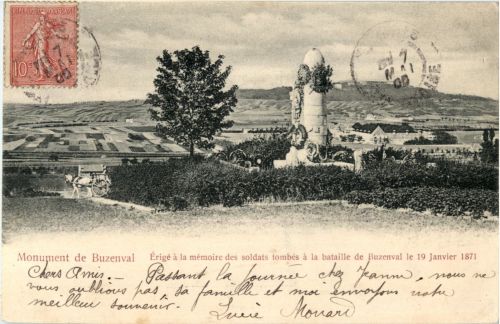 10
Monument de Buzenval Érigé à la mémoire des soldats tombés à la bataille de Buzenval le 19 Janvier 1871
Chers Amis. — Passant la journée chez Jeanne, nous ne
vous oublions pas sa famille et moi envoyons notre
meilleur souvenir. Lucie Monard